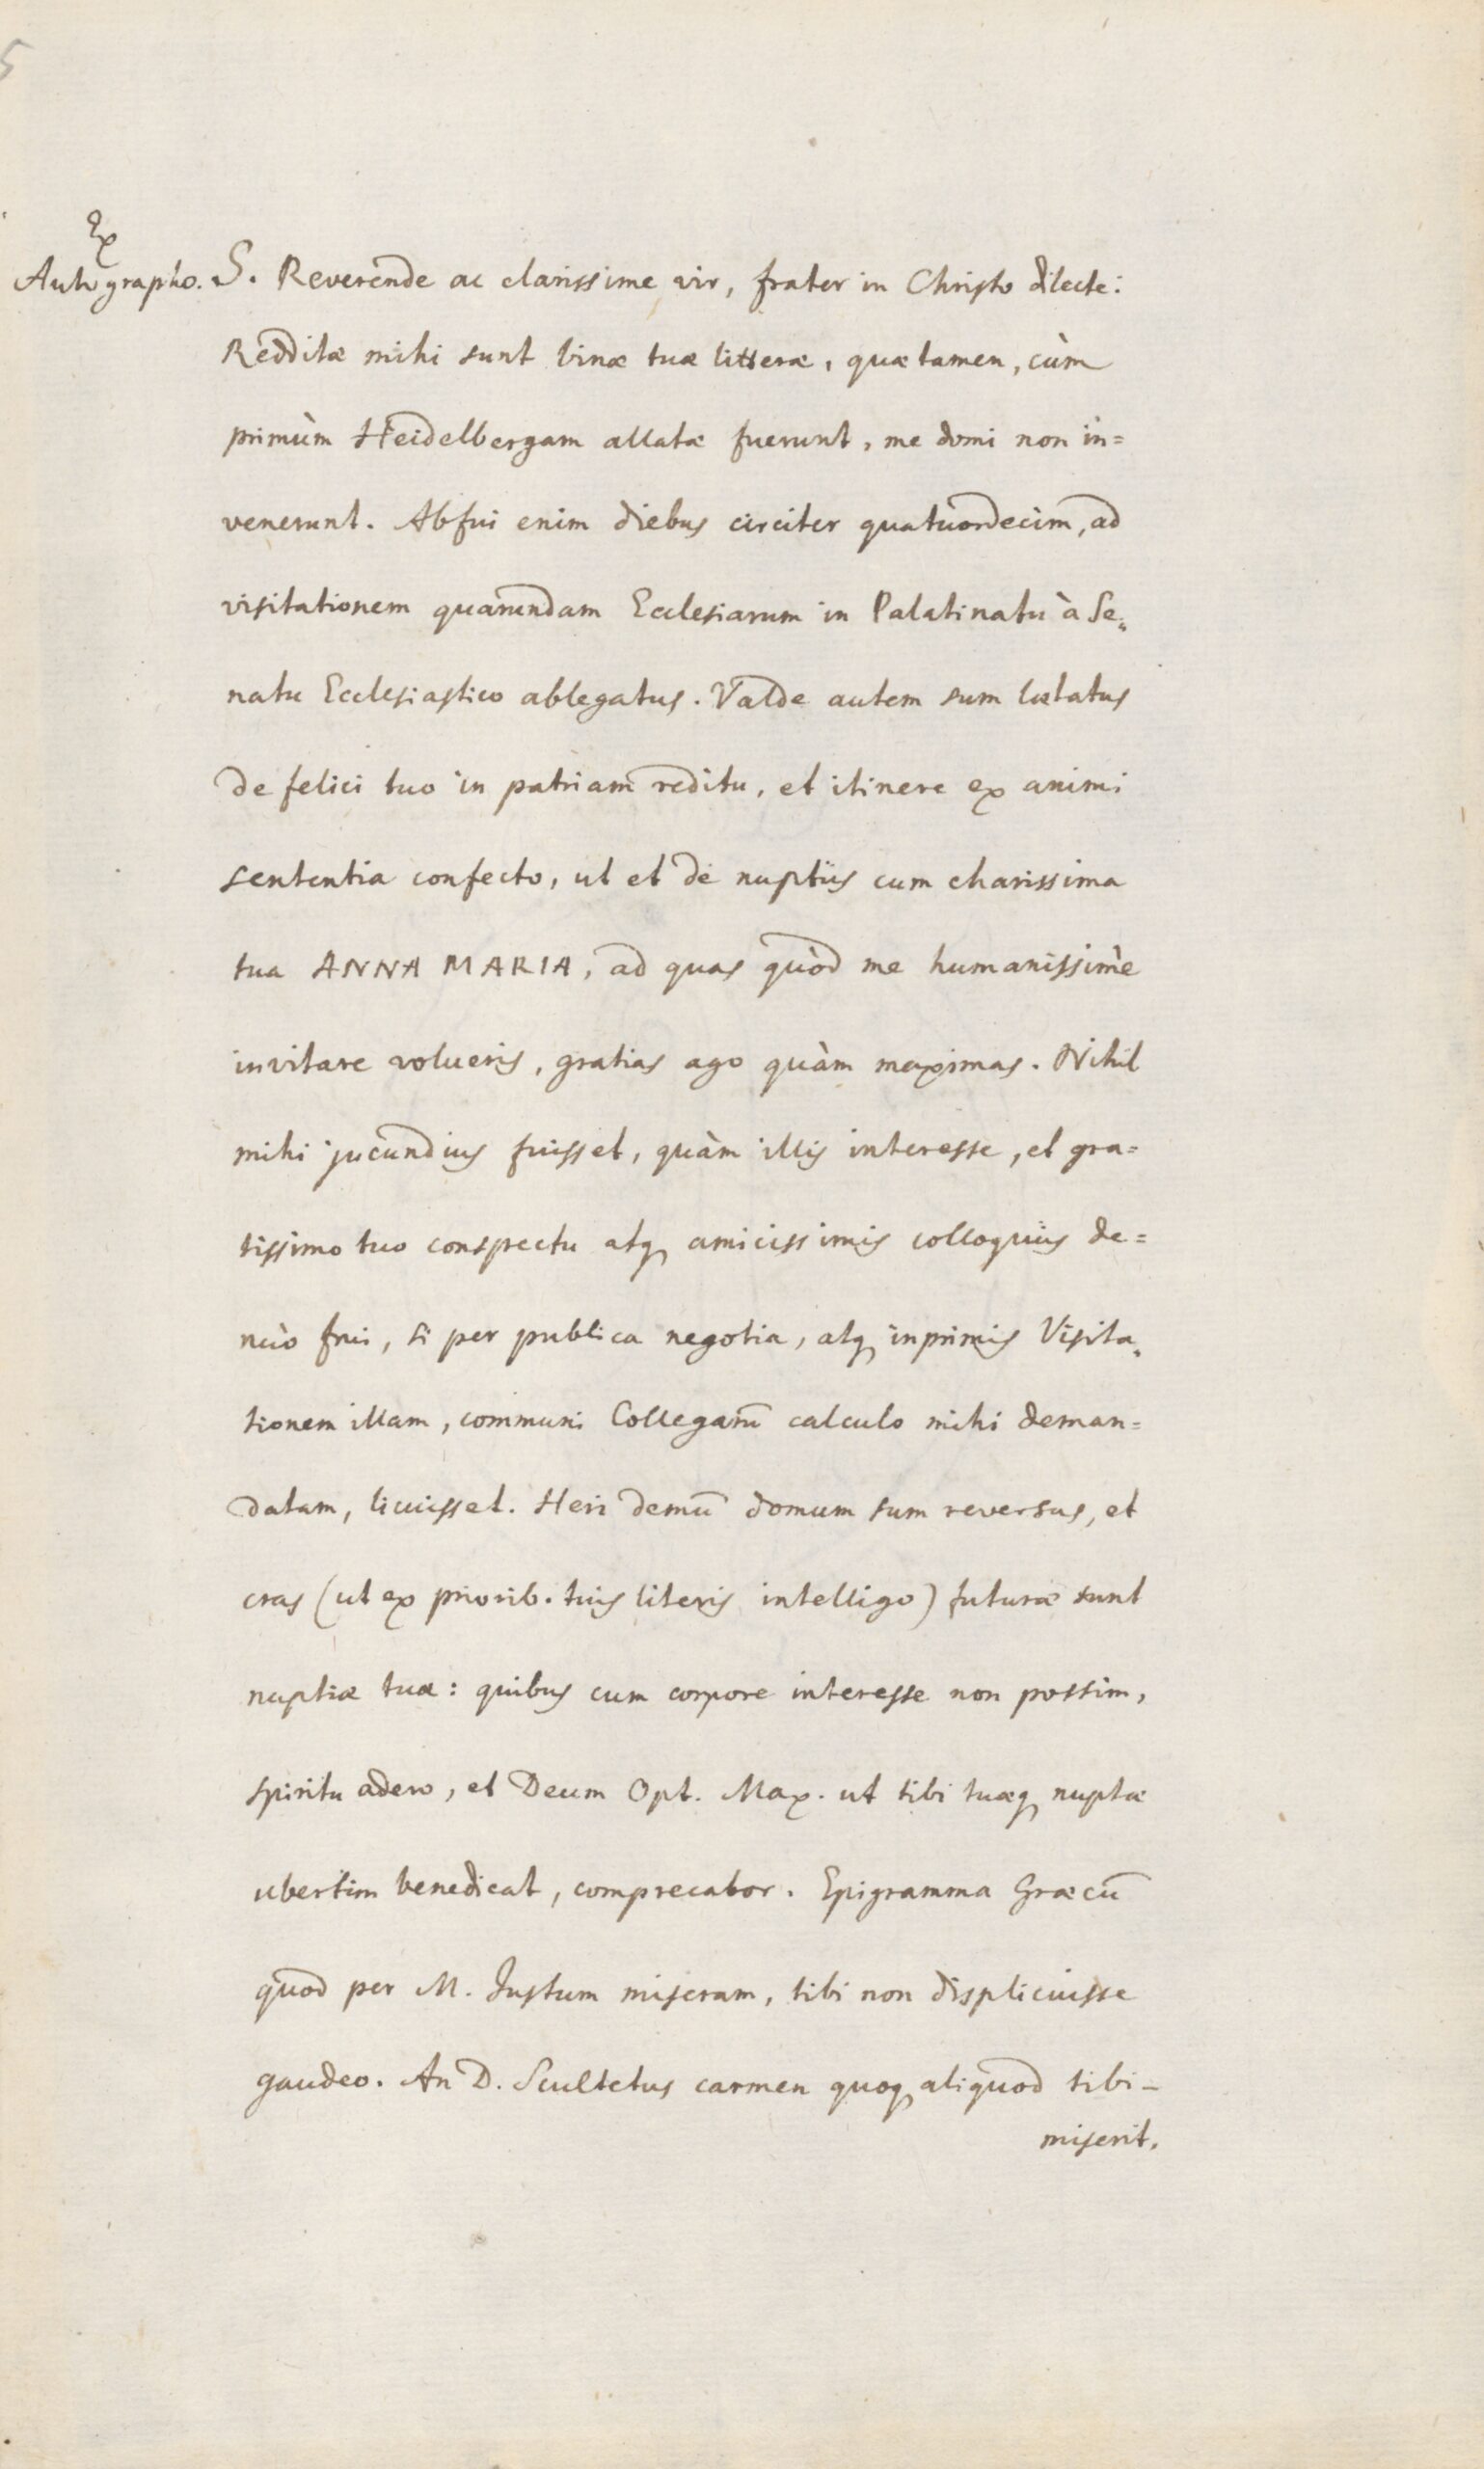 5
Ex
Autographo.
S. Reverende ac clarissime vir, frater in Christo dilecte:
Redditæ mihi sunt binæ tuæ litteræ, quæ tamen, cùm
primùm Heidelbergam allatæ fuerunt, me domi non in=
venerunt. Abfui enim diebus circiter quatuordecim, ad
visitationem quarundam Ecclesiarum in Palatinatu à Se=
natu Ecclesiastico ablegatus. Valde autem sum lætatus
de felici tuo in patriam reditu, et itinere ex animi
sententia confecto, ut et de nuptiis cum charissima
tua ANNA MARIA, ad quas quòd me humanissimè
invitare volueris, gratias ago quàm maximas. Nihil
mihi jucundius fuisset, quàm illis interesse, et gra=
tissimo tuo conspectu atq, amicissimis colloquiis de=
nuò frui, si per publica negotia, atq, inprimis Visita=
tionem illam, communi Collegarū calculo mihi deman=
datam, licuisset. Heri demū domum sum reversus, et
cras (ut ex priorib. tuis literis intelligo) futuræ sunt
nuptiæ tuæ: quibus cum corpore interesse non possim,
spiritu adero, et Deum Opt. Max. ut tibi tuæq, nuptæ
ubertim benedicat, comprecabor. Epigramma Græcū
quod per M. Justum miseram, tibi non displicuisse
gaudeo. An D. Scultetus carmen quoq, aliquod tibi-
miserit,